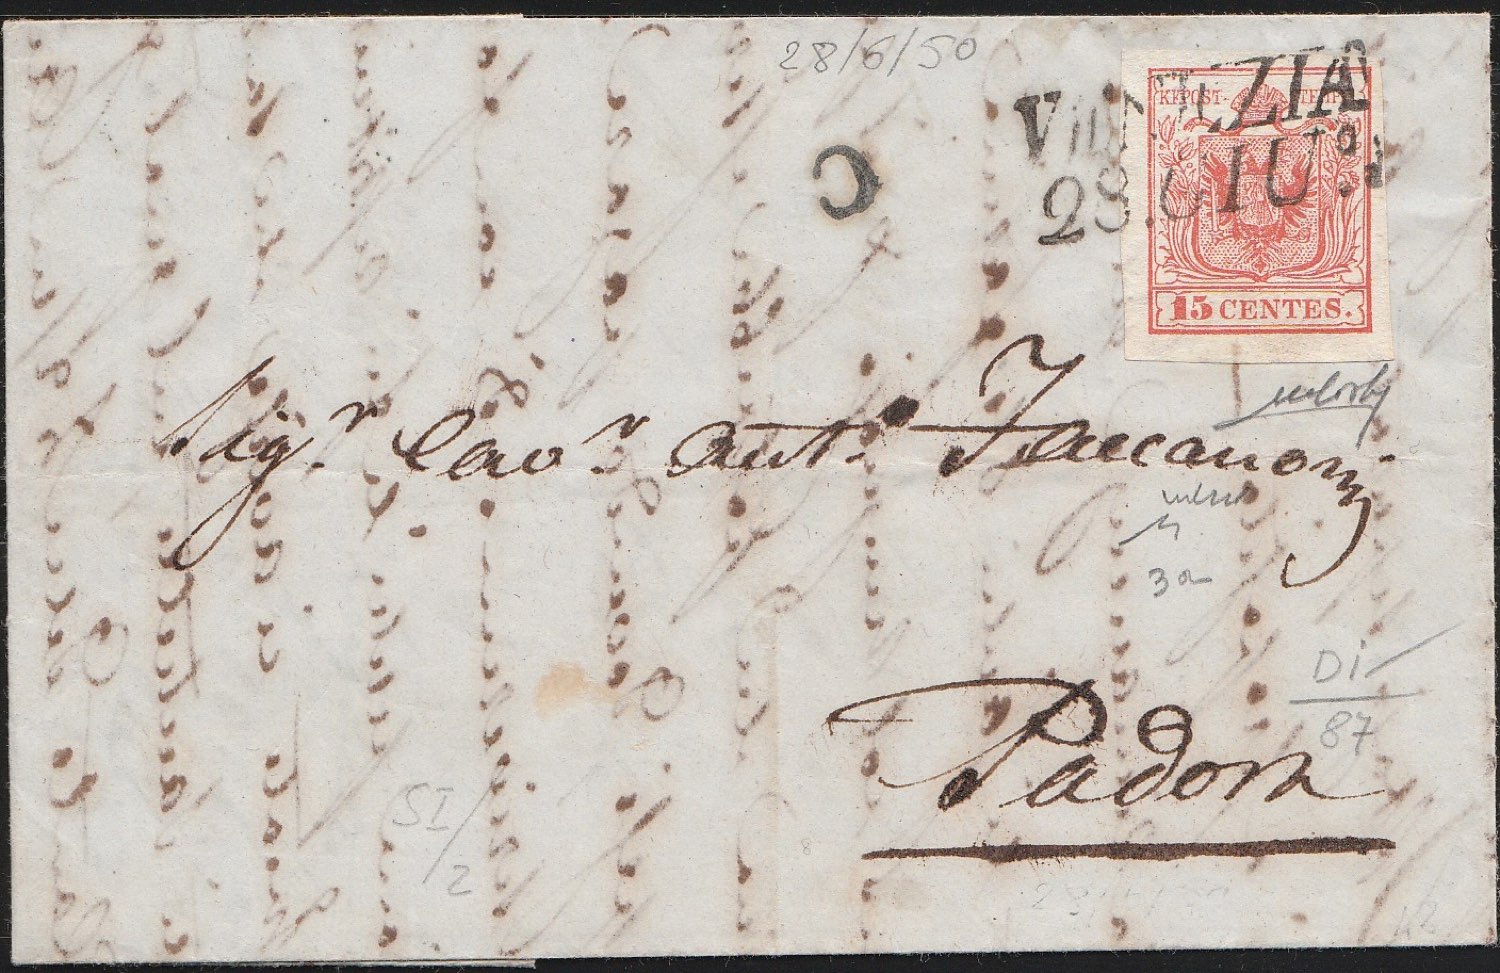 28/6/50
VENEZIA
28. GIU.
C
KKPOST-STEMPEL
15 CENTES.
Sigr. Cavr. Anto. Faccanoni
Padova
3a
Di
87
SI/2